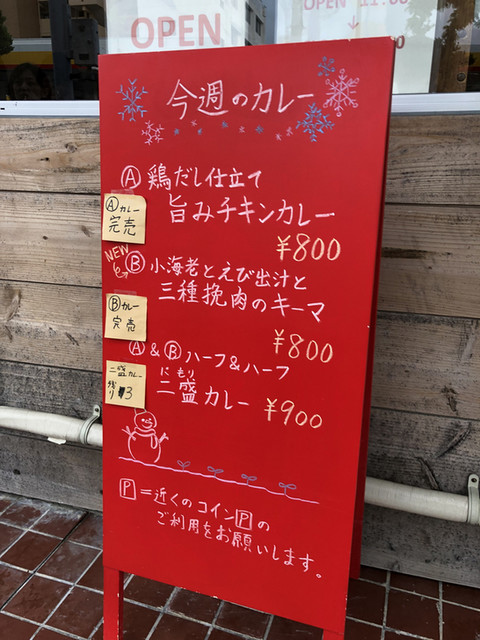 OPEN
OPEN 11:00
↓
今週のカレー
Ⓐ 鶏だし仕立て
旨みチキンカレー
¥800
Ⓐカレー
完売
NEW
Ⓑ 小海老とえび出汁と
三種挽肉のキーマ
¥800
Ⓑカレー
完売
Ⓐ&Ⓑハーフ&ハーフ
にもり
二盛カレー ¥900
二盛カレー
残り 3
🄿=近くのコイン🄿の
ご利用をお願いします。